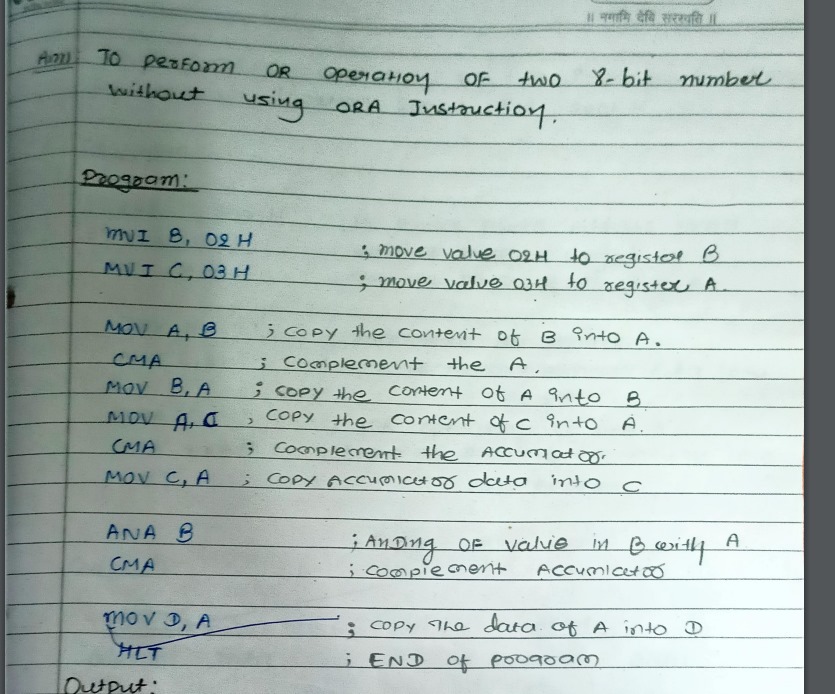 ॥ नमामि देवि सरस्वति ॥
Aim: To perform OR operation OF two 8-bit number
without using ORA Instruction.
Program:
MVI B, 02H ; move value 02H to register B
MVI C, 03H ; move value 03H to register A.
MOV A, B ; copy the content of B into A.
CMA ; complement the A.
MOV B, A ; copy the content of A into B
MOV A, C , copy the content of c into A.
CMA ; complement the Accumator.
MOV C, A ; copy Accumlator data into C
ANA B ; Anding OF value in B with A
CMA ; complement Accumlator
MOV D, A ; copy The data of A into D
HLT ; END of program
Output: